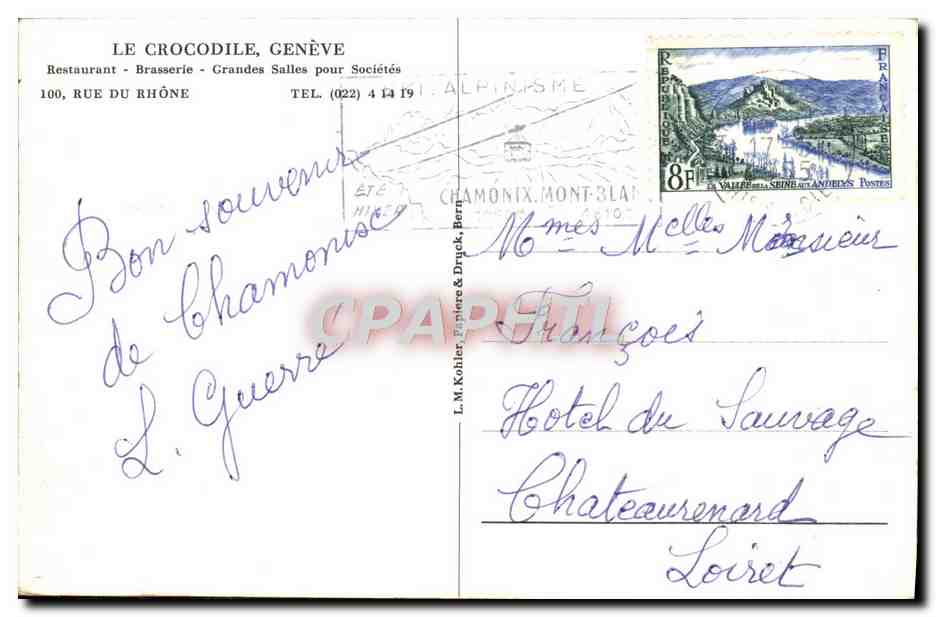 LE CROCODILE, GENÈVE
Restaurant - Brasserie - Grandes Salles pour Sociétés
100, RUE DU RHÔNE TEL. (022) 4 14 19
Bon souvenir
de Chamonise
L. Guerre
L. M. Kohler, Papiere & Druck, Bern
ALPINISME
ÉTÉ
HIVER
CHAMONIX.MONT-BLAN
RÉPUBLIQUE
FRANÇAISE
8F
LA VALLÉE DE LA SEINE AUX ANDELYS POSTES
Mmes Melles Monsieur
François
Hotel du Sauvage
Chateaurenard
Loiret
CPAPHIL